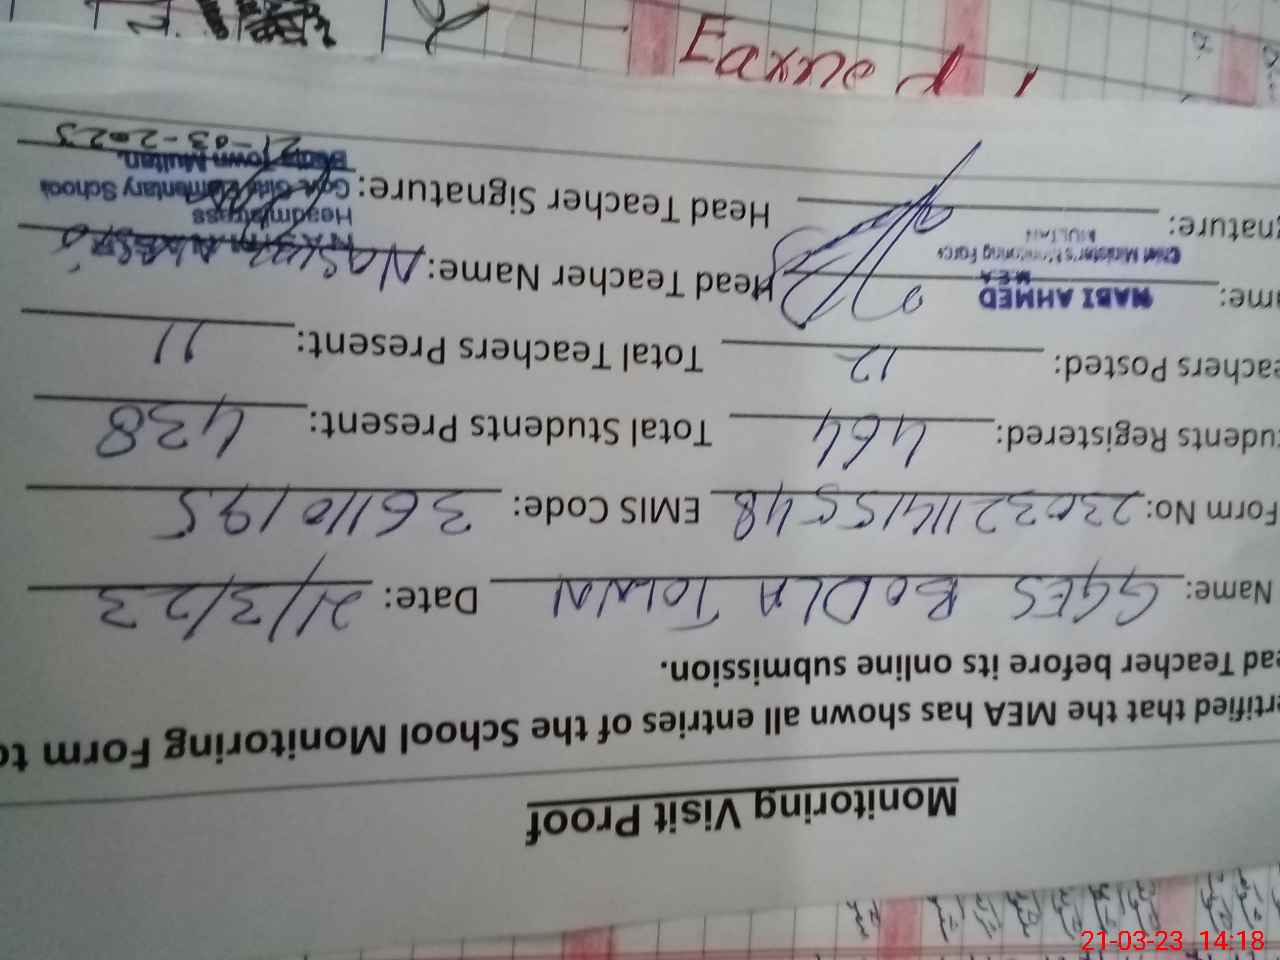 Monitoring Visit Proof
ertified that the MEA has shown all entries of the School Monitoring Form to
ead Teacher before its online submission.
Name: GGES BODLA TOWN Date: 21/3/23
Form No: 2303211415548 EMIS Code: 36110195
udents Registered: 464 Total Students Present: 438
eachers Posted: 12 Total Teachers Present: 11
ame: NABI AHMED Head Teacher Name:
M.E.A
Chief Minister's Monitoring Force
MULTAN
gnature: Head Teacher Signature:
Headmistress
Govt. Girls Elementary School
Bodla Town Multan.
21-03-2023
21-03-23 14:18